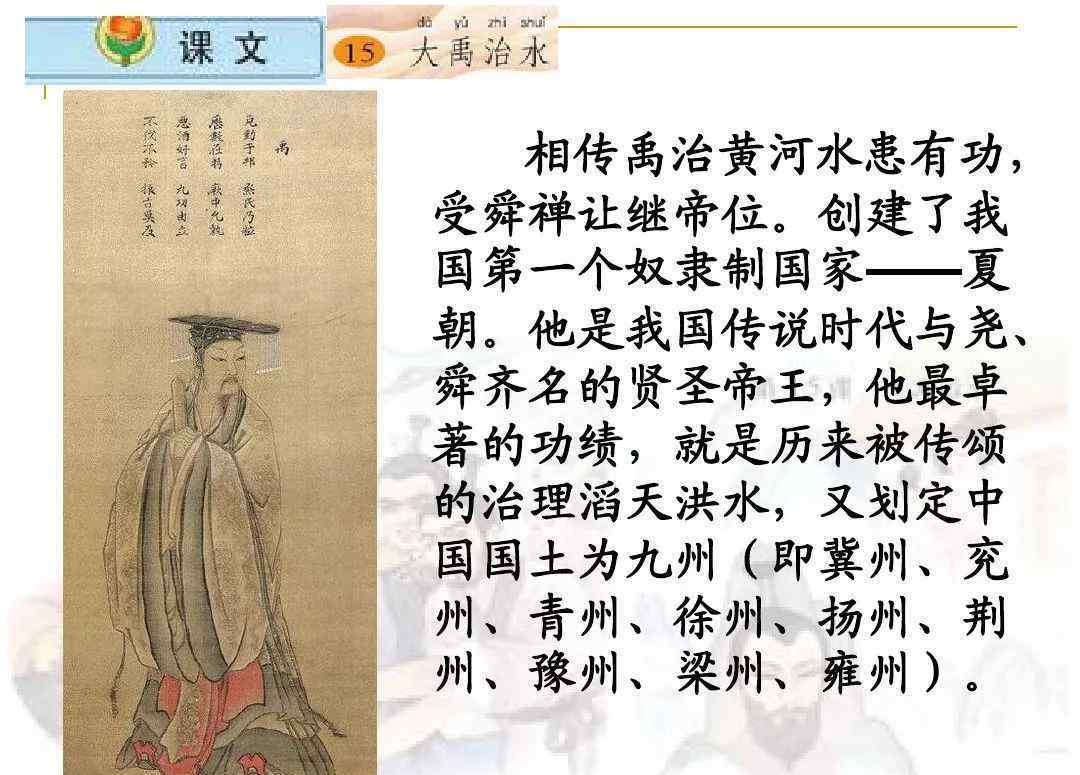 课文
dà yǔ zhì shuǐ
15 大禹治水
禹
克勤于邦 烝民乃粒
歷數在躬 厥中允執
惡酒好言 九功由立
不伐不矜 振古莫及
相传禹治黄河水患有功，
受舜禅让继帝位。创建了我
国第一个奴隶制国家——夏
朝。他是我国传说时代与尧、
舜齐名的贤圣帝王，他最卓
著的功绩，就是历来被传颂
的治理滔天洪水，又划定中
国国土为九州（即冀州、兖
州、青州、徐州、扬州、荆
州、豫州、梁州、雍州）。